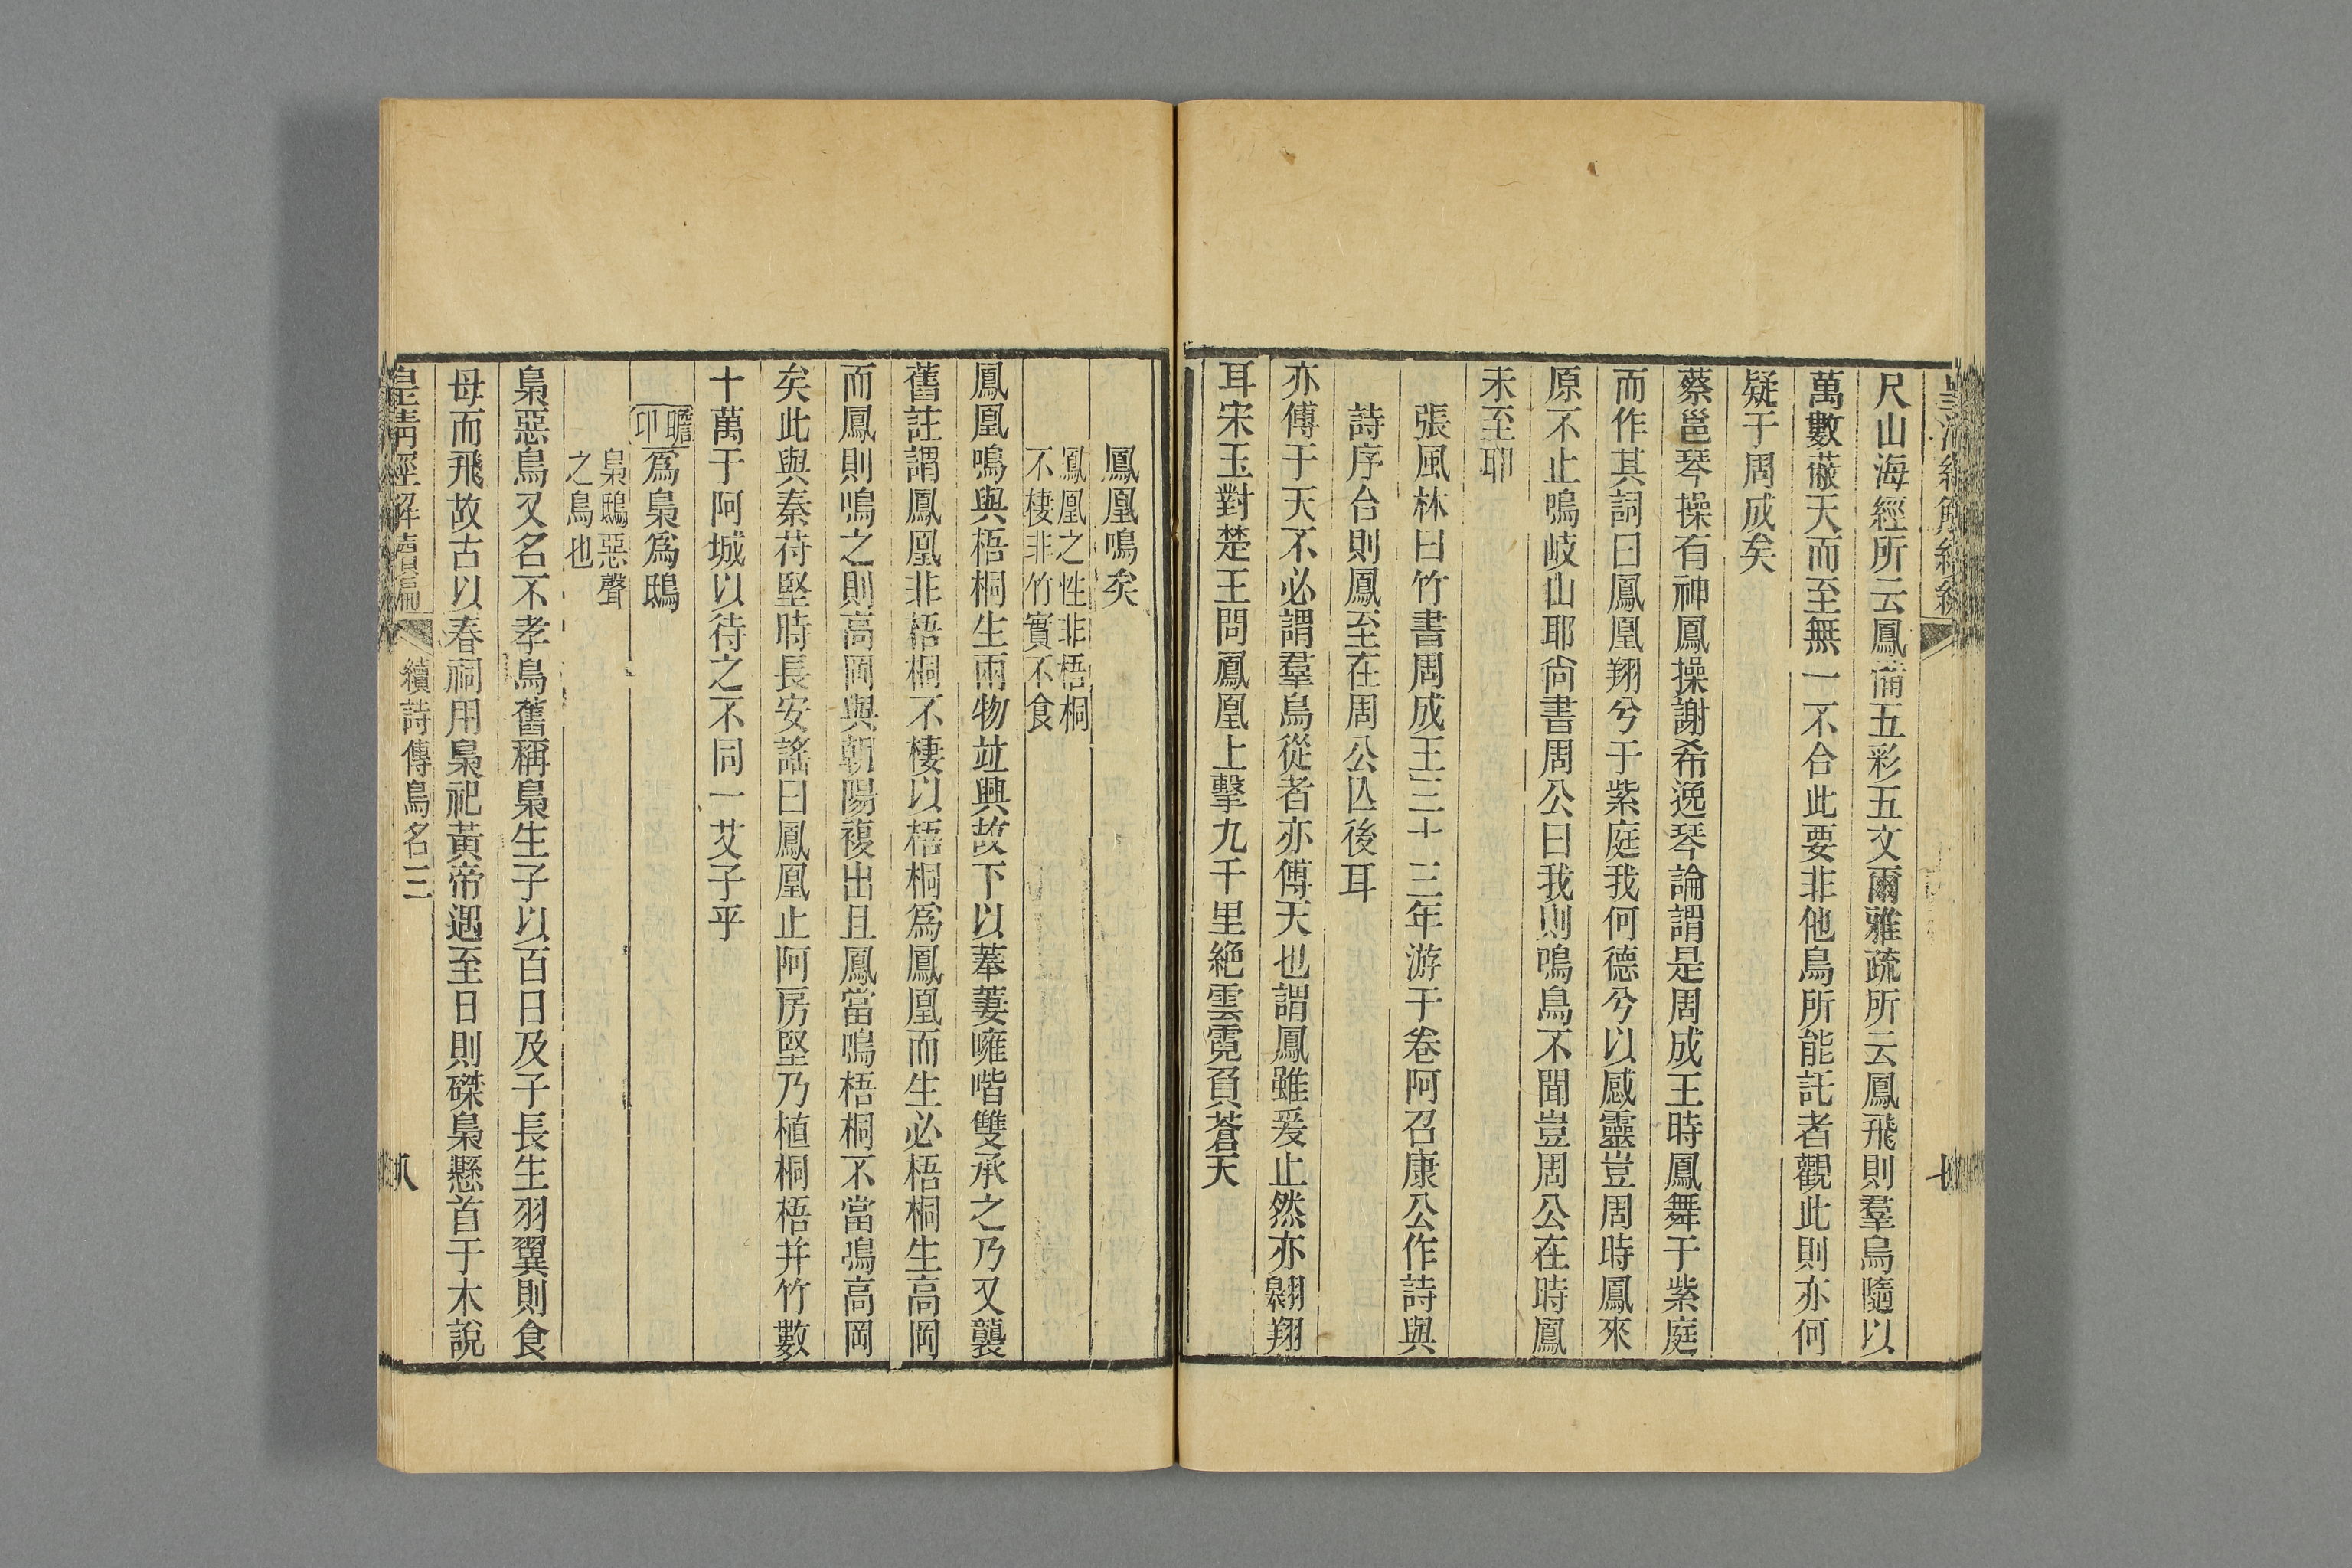 尺山海經所云鳳備五彩五文爾雅疏所云鳳飛則羣鳥隨以
萬數蔽天而至無一不合此要非他鳥所能託者觀此則亦何
疑于周成矣
蔡邕琴操有神鳳操謝希逸琴論謂是周成王時鳳舞于紫庭
而作其詞曰鳳凰翔兮于紫庭我何德兮以感靈豈周時鳳來
原不止鳴岐山耶尙書周公曰我則鳴鳥不聞豈周公在時鳳
未至耶
張風林曰竹書周成王三十三年游于卷阿召康公作詩與
詩序合則鳳至在周公亾後耳
亦傅于天不必謂羣鳥從者亦傅天也謂鳳雖爰止然亦翱翔
耳宋玉對楚王問鳳凰上擊九千里絶雲霓負蒼天
鳳凰鳴矣
鳳凰之性非梧桐
不棲非竹實不食
鳳凰鳴與梧桐生兩物竝興故下以菶萋雝喈雙承之乃又襲
舊註謂鳳凰非梧桐不棲以梧桐爲鳳凰而生必梧桐生高岡
而鳳則鳴之則高岡與朝陽複出且鳳當鳴梧桐不當鳴高岡
矣此與秦苻堅時長安謠曰鳳凰止阿房堅乃植桐梧并竹數
十萬于阿城以待之不同一艾子乎
瞻卬爲梟爲鴟
梟鴟惡聲
之鳥也
梟惡鳥又名不孝鳥舊稱梟生子以百日及子長生羽翼則食
母而飛故古以春祠用梟祀黃帝遇至日則磔梟懸首于木說
皇淸經解續編 續詩傳鳥名三 八